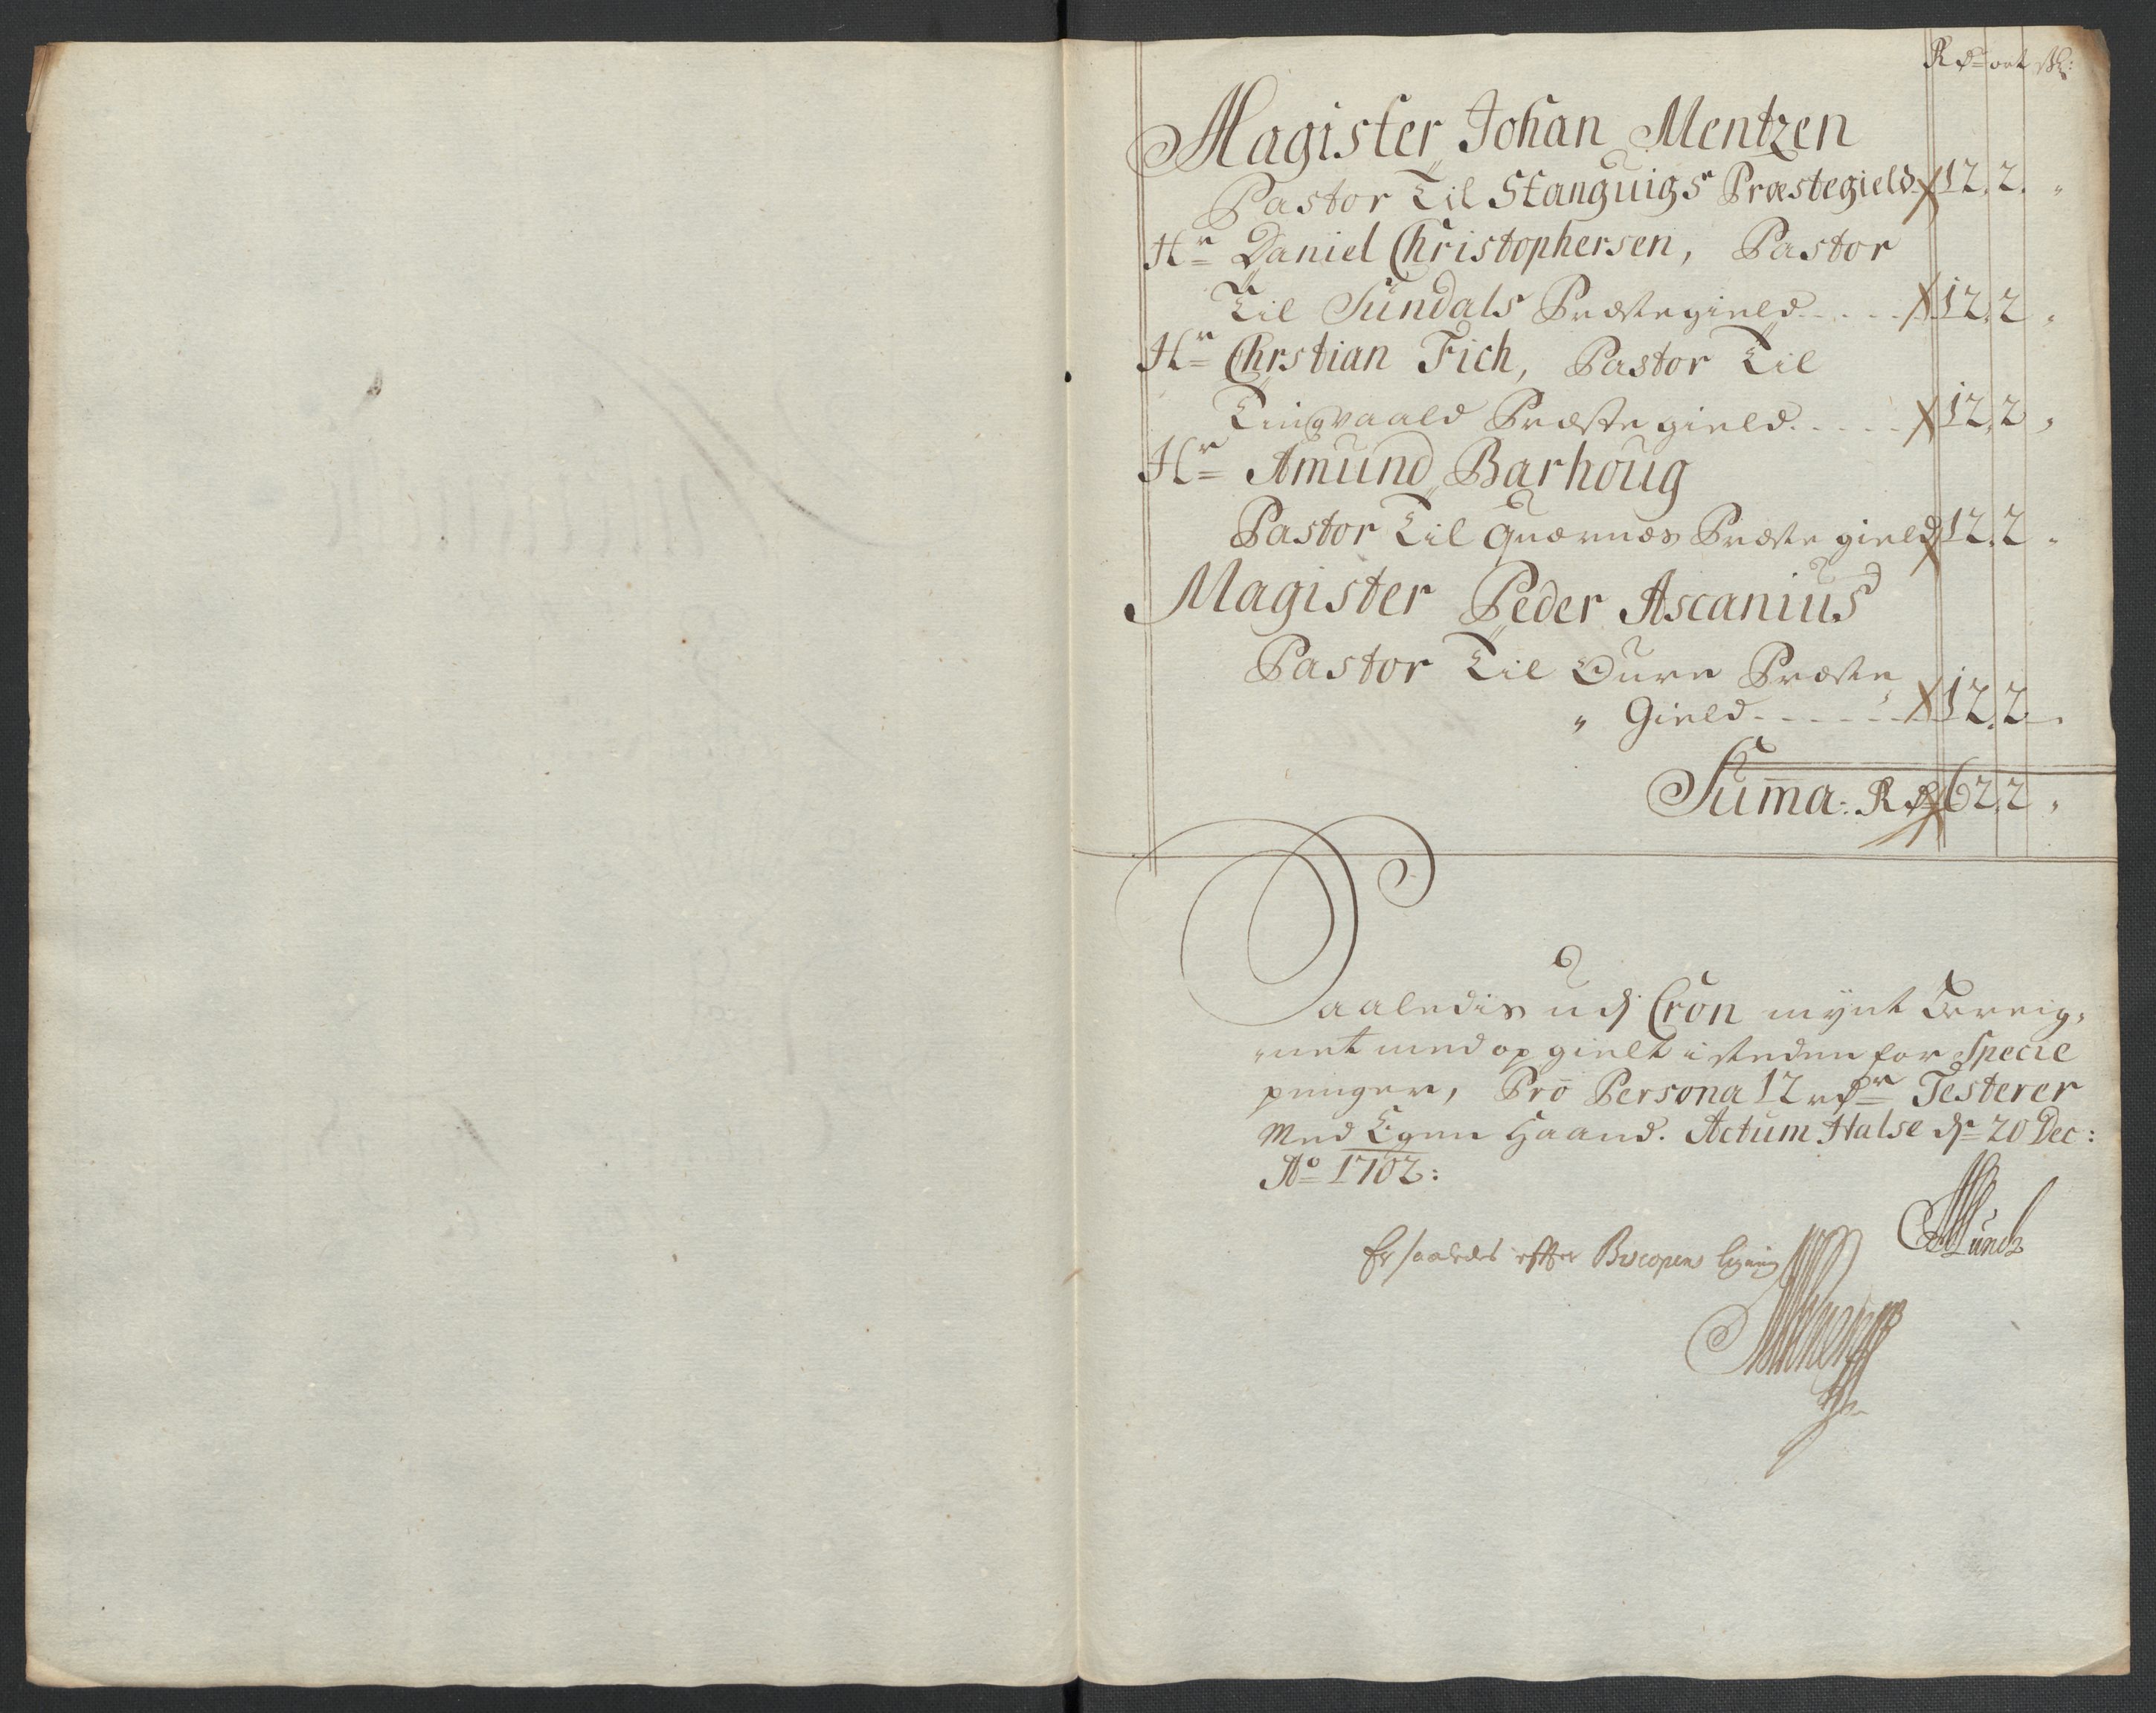 Rdr ort sk:
Magister Johan Mentzen
Pastor Til Stanguigs Præstegield 12. 2. "
Hr Daniel Christophersen, Pastor
Til Sundals Præstegield. . . . . 12. 2 "
Hr Chrstian Fich, Pastor Til
Tingvaald Præstegield. . . . . 12. 2 "
Hr Amund Barhoug
Pastor Til Quærnæs Præstegield 12. 2 "
Magister Peder Ascanius
Pastor Til Øure Præste
" Gield - - - - - - 12. 2 "
Summa: Rdr 62. 2 "
Saaledis udj Cron mÿnt
net med opgield i steden for Specie
penger, Pro Persona 12 rdr Testerer
Med Egen Haand. Actum Halse dn 20 Dec:
Ao 1702:
Er saaledes efter Biscopens ligning
Munch